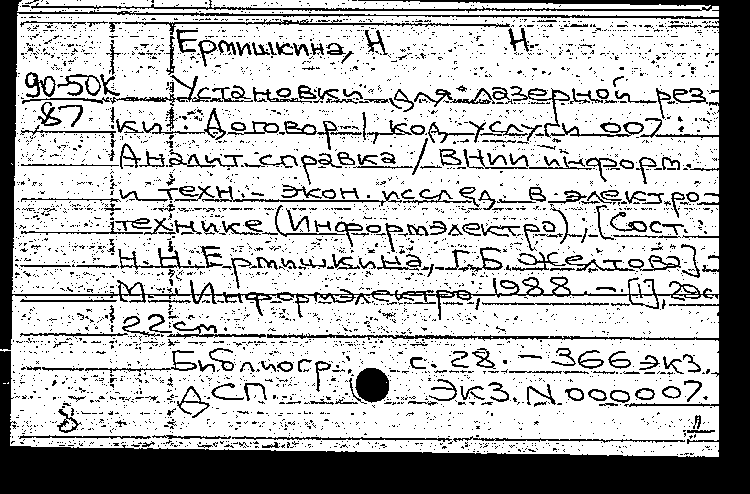 Ермишкина, Н Н.
90-50К Установки для лазерной рез-
87
ки : Договор-1, код услуги 007 :
Аналит. справка / ВНИИ информ.
и техн.- экон. исслед. в электро-
технике (Информэлектро), [Сост.:
Н.Н. Ермишкина, Г.Б. Желтова] -
М. : Информэлектро, 1988. - [1], 29с.
22 см.
Библиогр.: с. 28. - 366 экз.
ДСП. ЭКЗ. N 000007.
8